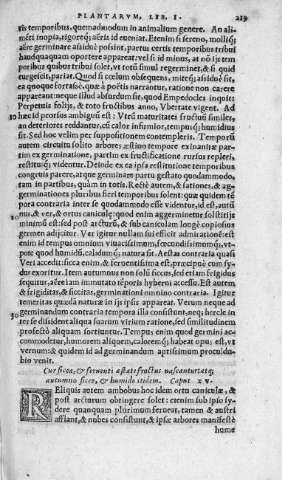 PLANTARVM, LIB. I. 219
tis temporibus, quemadmodum in animalium genere. An ali-
meti inopia, rigoreq; aëris id eveniat. Etenim si sereno, molliq;
aëre germinare assiduè possint, partus certis temporibus tribui
haudquaquam oportere appareat: vel si id minus, at nō ijs tem
poribus quibus tribui solet, vt totū simul regerminet, & quasi
turgescit, pariat. Quod si cœlum obsequens, miteq; assiduè sit,
ea quoque fortasse, quæ à poëtis narrantur, minimè absurda
neque etiam illud absurdum sit, quod Empedocles inquit
Perpetuis folijs, & toto fructibus anno, Vbertate vigent. Ad
hæc id prorsus ambiguū est: Vtrū maturitates fructuū similes,
an deteriores reddantur, cū calor infirmior, tempusq; humidius
sit. Sed hoc velim per suppositionem contempleris. Temporū
autem circuitu solito arbores: æstiuo tempore exinanitæ par-
tim ex germinatione, partim ex fructificatione rursus repleri,
restituiq; videntur. Deinde ex ipsa restitutione temporibus
congruis parere, atque germinare partu gestato quodammodo,
tam in partibus, quàm in totis. Rectè autem, & sationes, & ag-
germinationes pluribus fieri temporibus solent: quæ quidem tē
pora contraria inter se quodammodo esse videntur, id est, autū
nus, & ver, & ortus caniculę: quod enim aggerminetur solstitij
minimū est: sed post arcturū, & sub caniculam longè copiosus
germen adijcitur. Ver igitur nullam sui efficit admirationē: est
enim id tempus omnium viuacissimum, fœcundissimumq;, vt-
pote quod humidū, calidumq; natura sit. Aestas contraria quasi
Veri accedit: sicca enim, & feruentissima est: præcipuè cum sy-
dus exoritur. Item autumnus non solū siccus, sed etiam frigidus
sequitur, aëre iam immutato ob syderis humores accessu. Est autem
& frigiditas, & siccitas, germinationi omnino contraria. Igitur
temeritas quædā naturæ in ijs ipsis apparet. Verùm neque ad
germinandum contraria tempora illa consistunt, neq; hercle in
ter se dissident aliqua suarum virium ratione, sed similitudinem
profectò aliquam sortiuntur. Tempus enim quod germini ac-
commodetur, humorem aliquem, calorem q; habeat opus est, vt
vernum: & quidem id ad germinandum aptissimum procul du-
bio venit.
Cur sicca, & feruenti æstate fructus nascantur: atq;
autumno sicco, & humido itidem. Caput XV.
REliquis autem ambobus hoc idem ortu caniculæ, &
post arcturum obtingere solet: etenim sub ipso sy-
dere quanquam plurimum feruent, tamen & austri
afflant, & nubes consistunt, & ipsæ arbores manifestè
hume